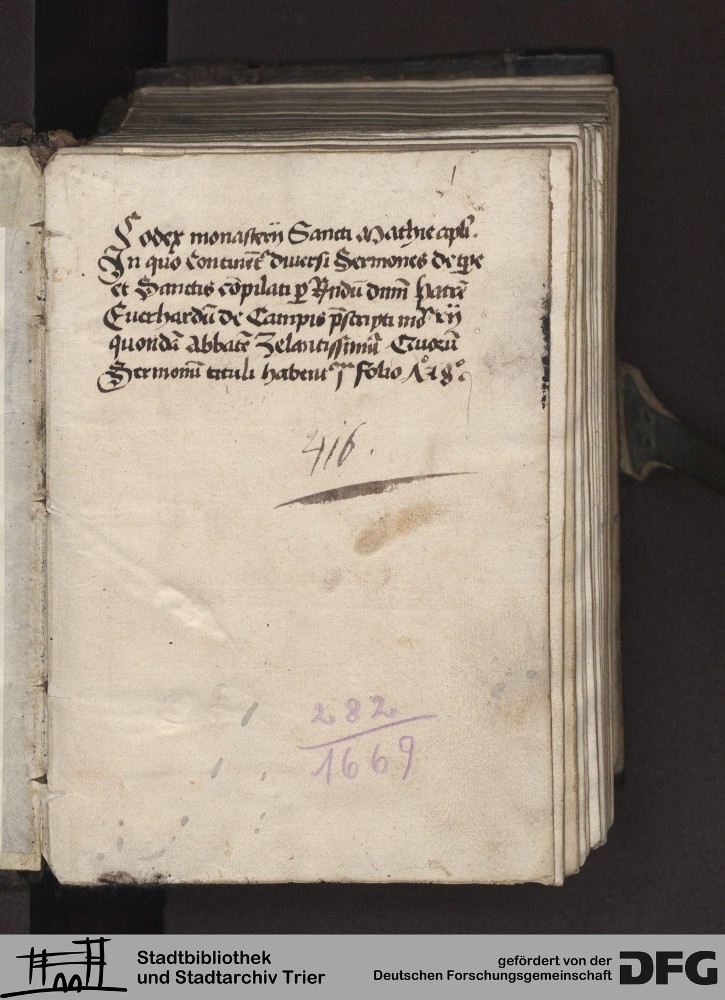 1
Codex monasterij Sancti Mathie apli.
In quo Continent᷑ diuersi Sermones de tp̄e
et Sanctis cōpilati ꝑ Rndū dnm̄ patrē
Euerhardū de Campis p̄scripti mo rij
quondā Abbatē Zelantissimū Quorū
Sermonū tituli habent᷑ folio
416.
282
1669
Stadtbibliothek
und Stadtarchiv Trier
gefördert von der
Deutschen Forschungsgemeinschaft
DFG